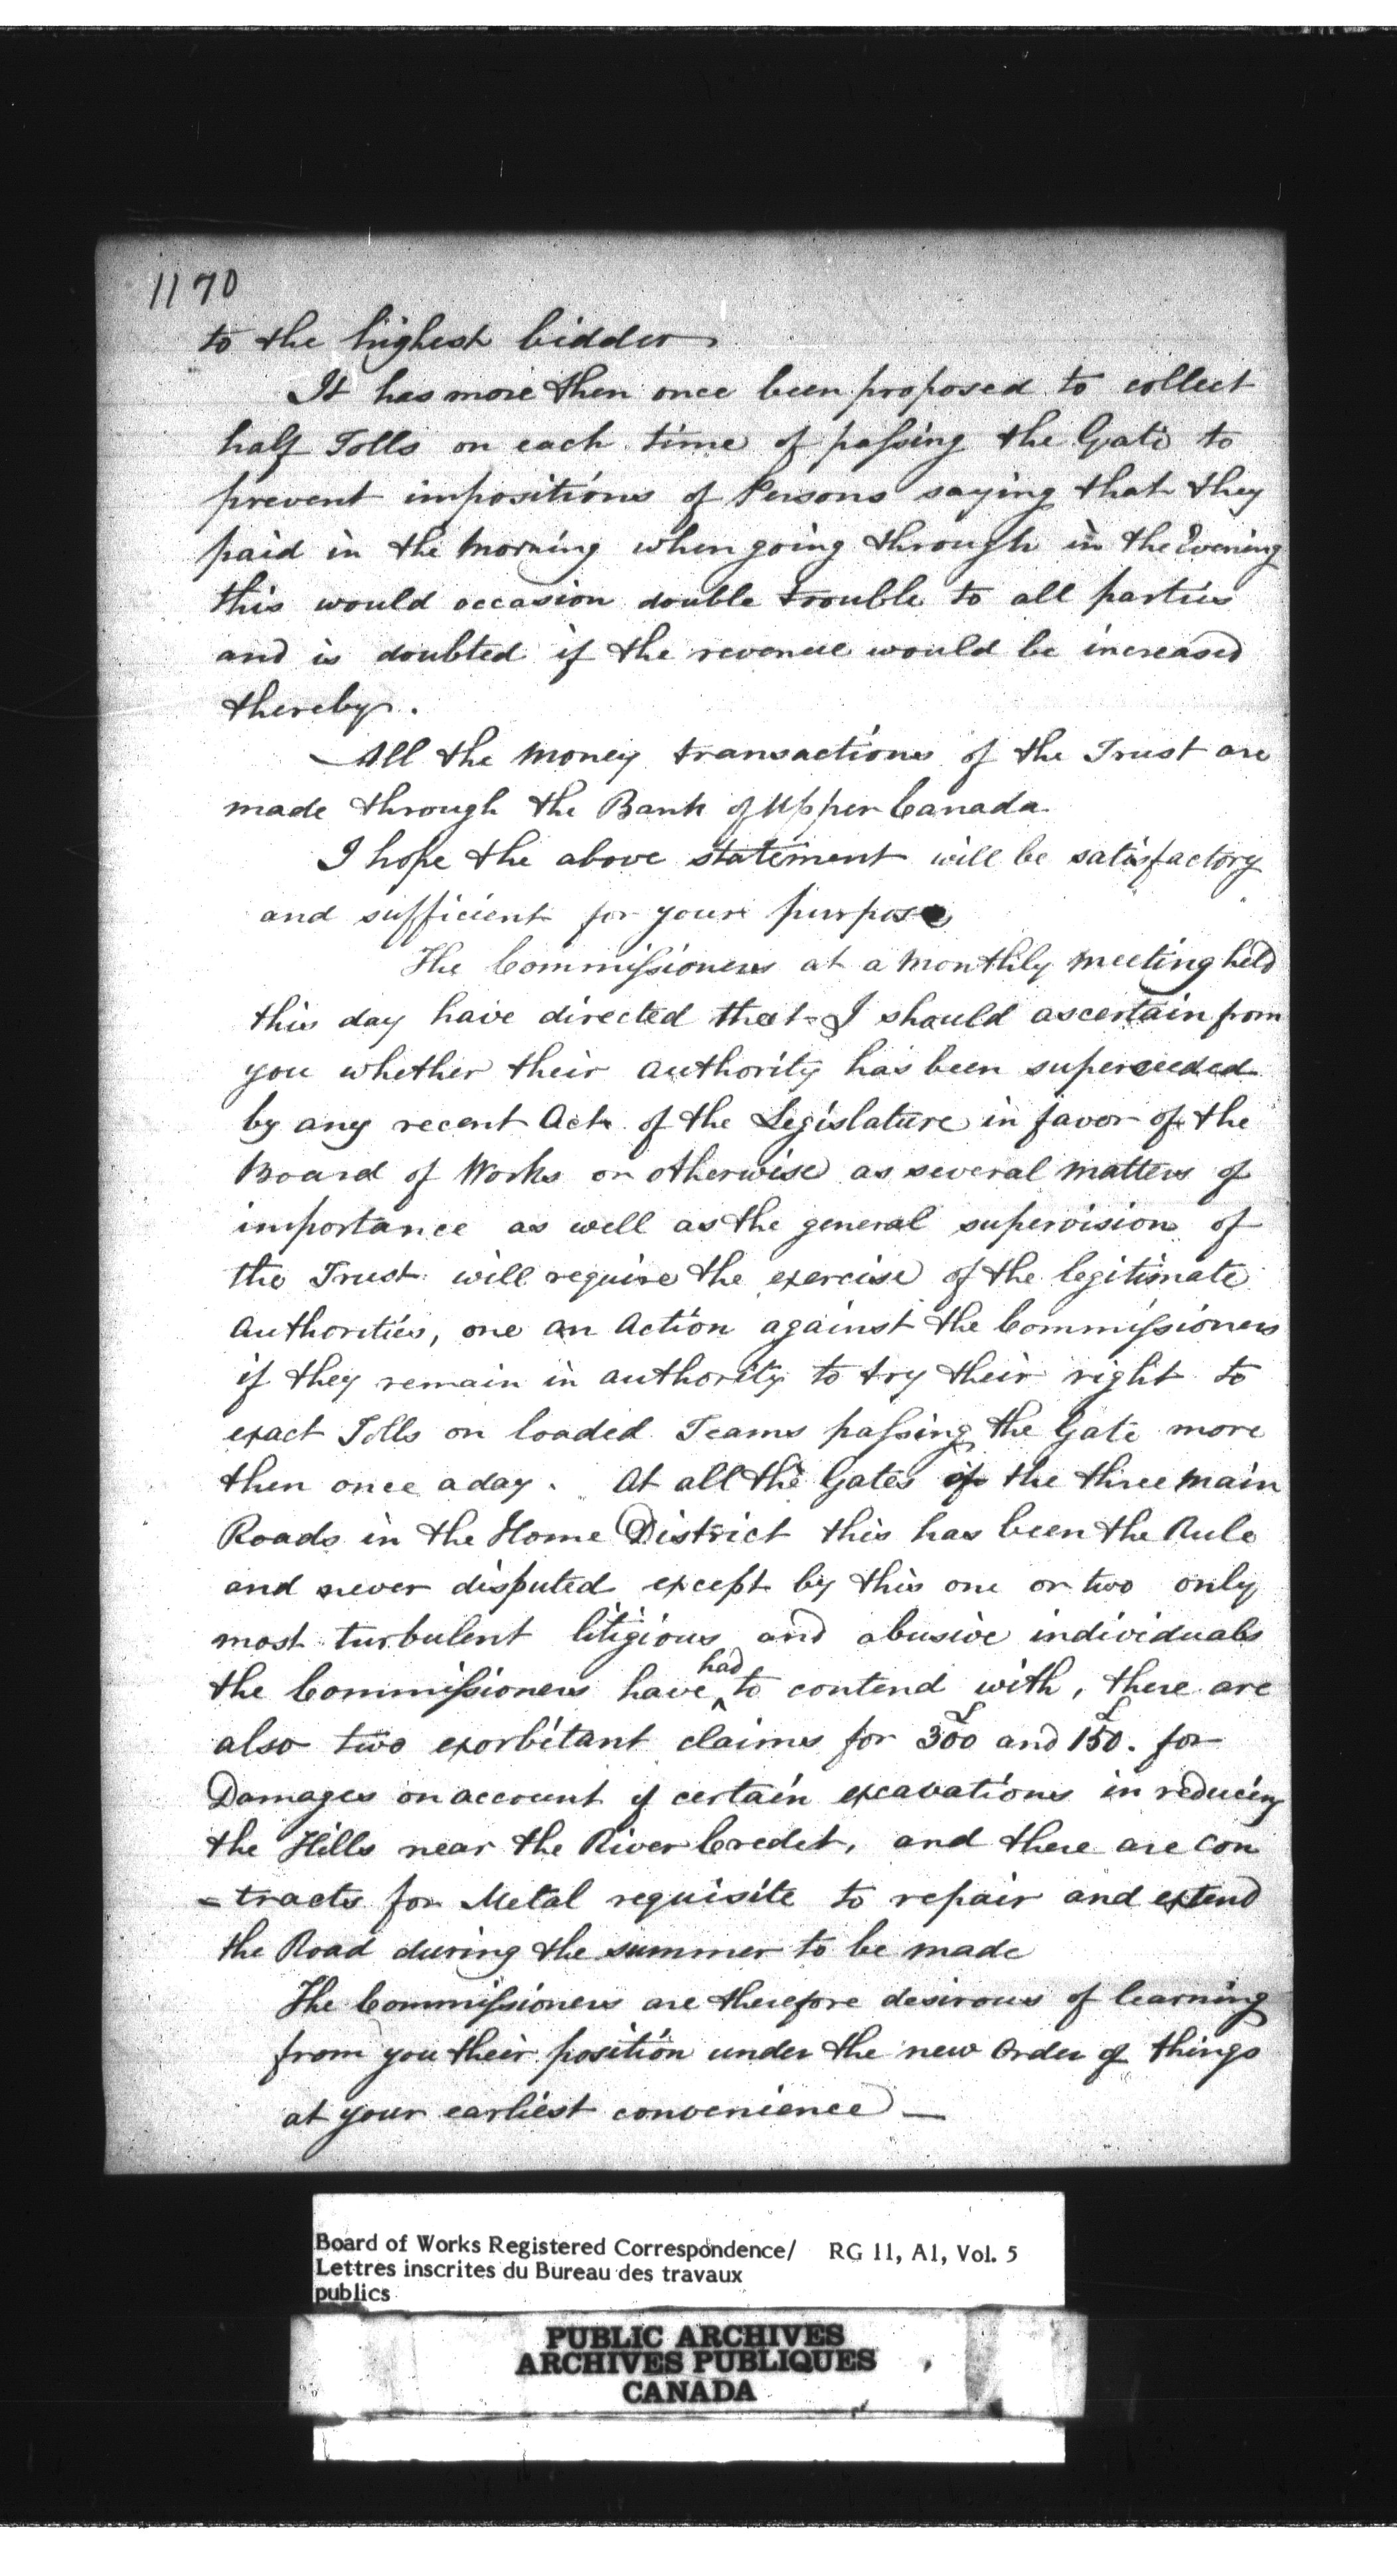 1170
to the highest bidder
It has more then once been proposed to collect
half Tolls on each time of passing the Gate to
prevent impositions of Persons saying that they
paid in the Morning when going through in the Evening
this would occasion double trouble to all parties
and is doubted if the revenue would be increased
thereby.
All the Money transactions of the Trust are
made through the Bank of Upper Canada
I hope the above statement will be satisfactory
and sufficient for your purpose
The Commissioners at a Monthly Meeting held
this day have directed that I should ascertain from
you whether their authority has been superceeded
by any recent Act of the Legislature in favor of the
Board of Works or otherwise as several matters of
importance as well as the general supervision of
the Trust will require the exercise of the legitimate
authorities, one an Action against the Commissioners
if they remain in authority to try their right to
exact Tolls on loaded Teams passing the Gate more
then once a day. At all the Gates of the three Main
Roads in the Home District this has been the Rule
and never disputed except by this one or two only
most turbulent litigious and abusive individuals
the Commissioners have had to contend with, there are
also two exorbitant claims for £300 and £150. for
Damages on account of certain excavations in reducing
the Hills near the River Credit, and there are Con
=tracts for Metal requisite to repair and extend
the Road during the summer to be made
The Commissioners are therefore desirous of learning
from you their position under the new Order of things
at your earliest convenience —
Board of Works Registered Correspondence/ RG 11, A1, Vol. 5
Lettres inscrites du Bureau des travaux
publics
PUBLIC ARCHIVES
ARCHIVES PUBLIQUES
CANADA